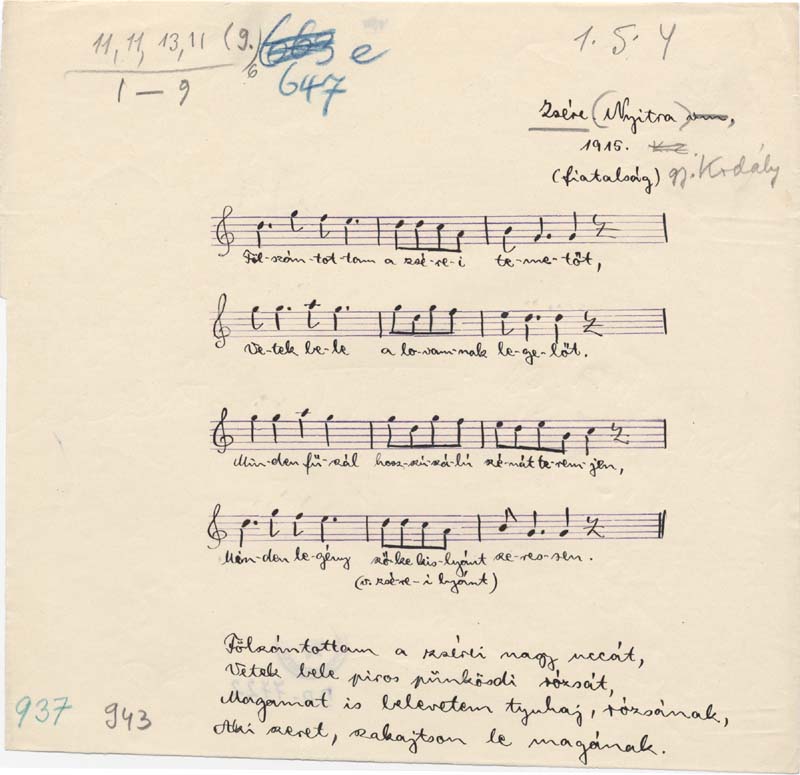 11, 11, 13, 11 (9.)
1 – 9
6
663 e
647
1. 5. 4
Zsére (Nyitra) vm,
1915. K.Z.
(fiatalság) gj. Kodály
Föl-szán-tot-tam a zsé-re-i te-me-tőt,
Ve-tek be-le a lo-vam-nak le-ge-lőt.
Min-den fű-szál hosz-szú szá-lú szé-nát te-rem-jen,
Min-den le-gény sző-ke kis-lyánt sze-res-sen.
(v. zsére-i lyánt)
Fölszántottam a zsérei nagy uccát,
Vetek bele piros pünkösdi rózsát,
Magamat is belevetem tyuhaj, rózsának,
Aki szeret, szakajtson le magának.
937 943